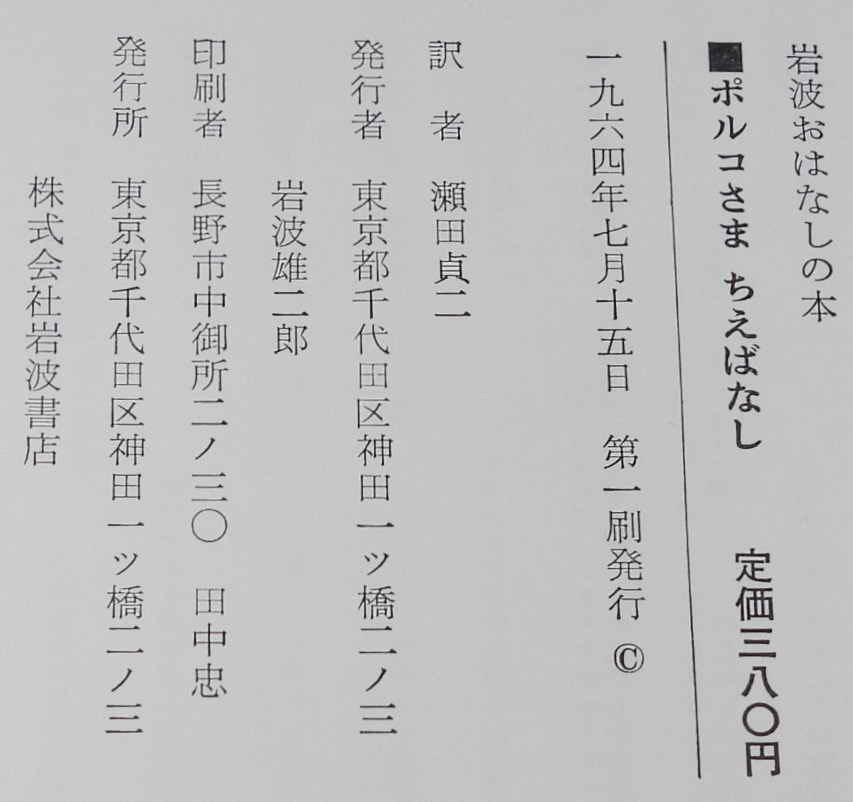 岩波おはなしの本
■ポルコさま ちえばなし　定価三八〇円
一九六四年七月十五日　第一刷発行 ©
訳　者　瀬田貞二
発行者　東京都千代田区神田一ツ橋二ノ三
岩波雄二郎
印刷者　長野市中御所二ノ三〇　田中忠
発行所　東京都千代田区神田一ツ橋二ノ三
株式会社岩波書店